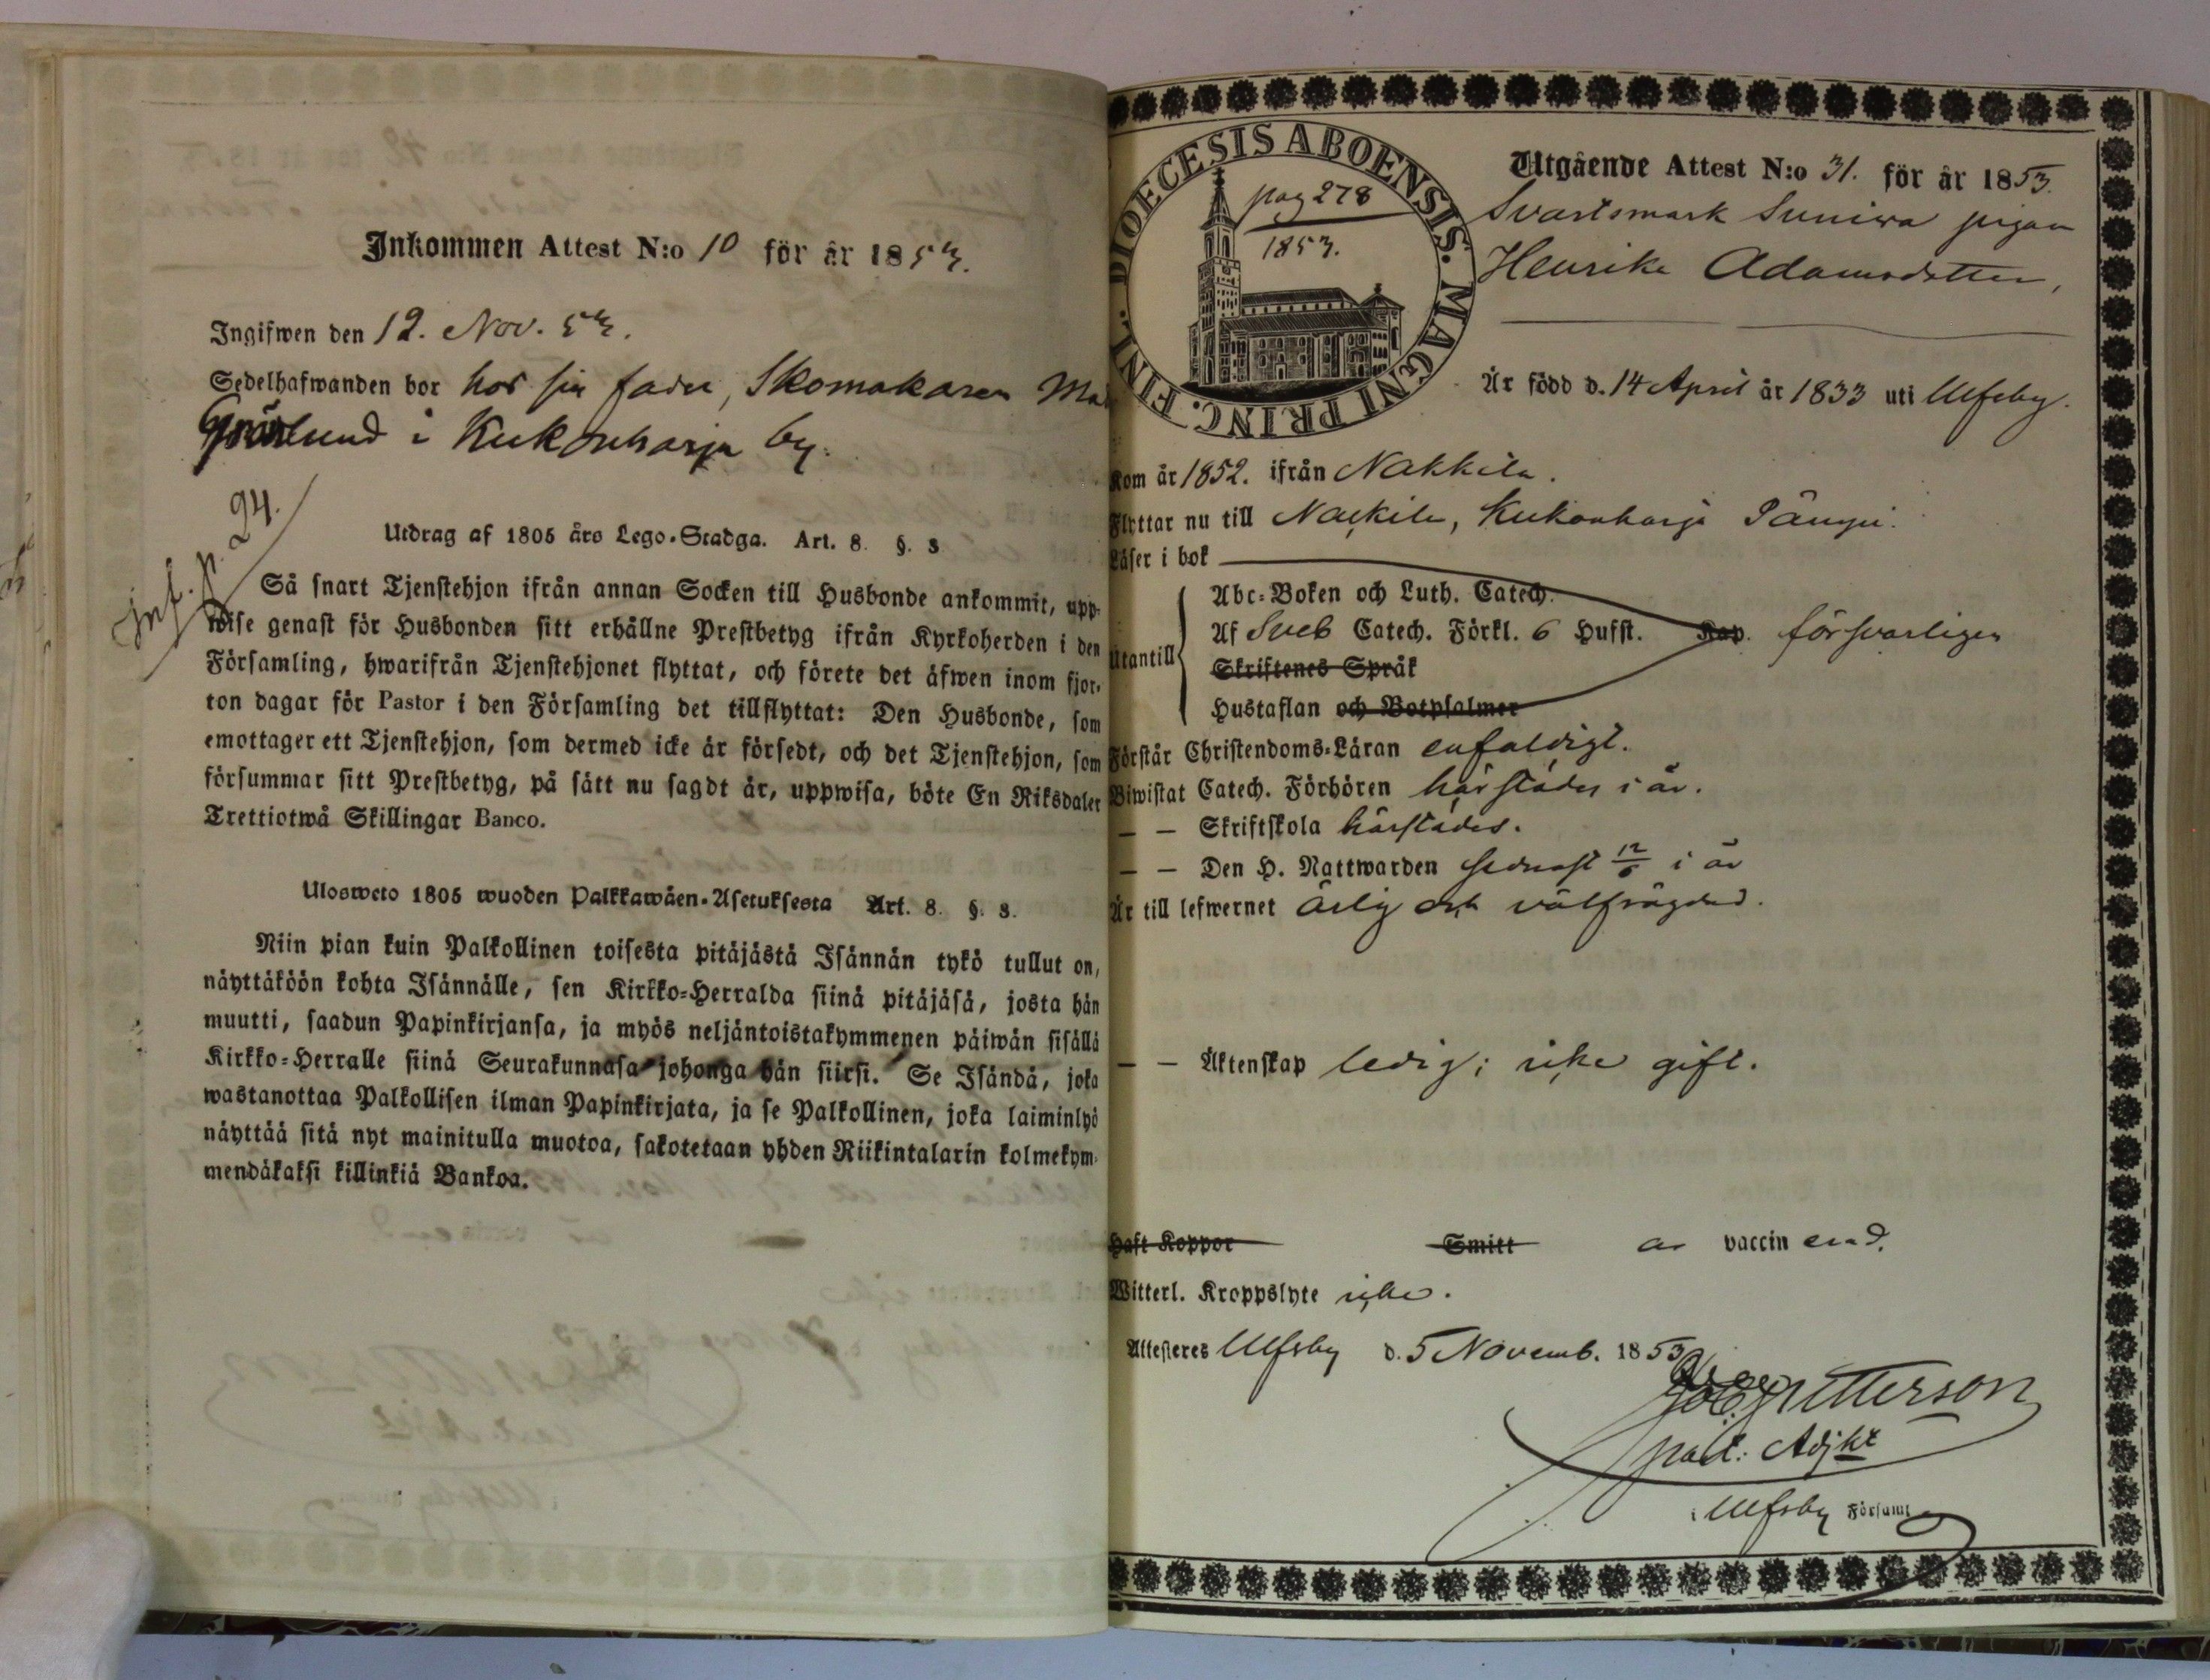 Inkommen Attest N:o 10 för år 1853.
Ingifwen den 12. Nov. 53.
Sedelhafwanden bor hos sin fader, Skomakaren
Grönlund i Kukonharja by.
inf. p. 94.
Utdrag af 1805 års Lego-Stadga. Art. 8. §. 3
Så snart Tjenstehjon ifrån annan Socken till Husbonde ankommit, upp-
wise genast för Husbonden sitt erhållne Prestbetyg ifrån Kyrkoherden i den
Församling, hwarifrån Tjenstehjonet flyttat, och förete det äfwen inom fjor-
ton dagar för Pastor i den Församling det tillflyttat: Den Husbonde, som
emottager ett Tjenstehjon, som dermed icke är försedt, och det Tjenstehjon, som
försummar sitt Prestbetyg, på sätt nu sagdt är, uppwisa, böte En Riksdaler
Trettiotwå Skillingar Banco.
Ulosweto 1805 wuoden Palkkawäen-Asetuksesta Art. 8. §. 3.
Niin pian kuin Palkollinen toisesta pitäjästä Isännän tykö tullut on,
näyttäköön kohta Isännälle, sen Kirkko-Herralda siinä pitäjäsä, josta hän
muutti, saadun Papinkirjansa, ja myös neljäntoistakymmenen päiwän sisällä
Kirkko-Herralle siinä Seurakunnasa johonga hän siirsi. Se Isändä, joka
wastanottaa Palkollisen ilman Papinkirjata, ja se Palkollinen, joka laiminlyö
näyttää sitä nyt mainitulla muotoa, sakotetaan yhden Riikintalarin kolmekym-
mendäkaksi killinkiä Bankoa.
DIOECESIS ABOENSIS. MAGNI PRINC. FINL.
pag 278
1853.
Utgående Attest N:o 31. för år 1853.
Svartsmark Suniwa pigan
Henrika Adamsdotter,
Är född d. 14 April år 1833 uti Ulfsby.
Kom år 1852. ifrån Nakkila.
Flyttar nu till Nackila, Kukonharja
Läser i bok
Utantill
Abc-Boken och Luth. Catech.
Af Sveb Catech. Förkl. 6 Hufst. Kap. försvarligen
Skriftenes Språk
Hustaflan och Botpsalmer
Förstår Christendoms-Läran enfaldigt.
Biwistat Catech. Förhören härstädes i år.
— — Skriftskola härstädes.
— — Den H. Nattwarden sednast 12/6 i år
Är till lefwernet ärlig och välfrägdad.
— — Äktenskap ledig; icke gift.
Haft Koppor Smitt är vaccinerad.
Witterl. Kroppslyte icke.
Attesteres Ulfsby d. 5 Novemb. 1853
Petterson
past. Adjkt
i Ulfsby Församl